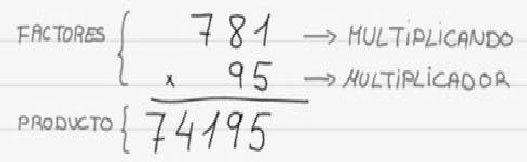 FACTORES { 781 → MULTIPLICANDO
x 95 → MULTIPLICADOR
PRODUCTO { 74195